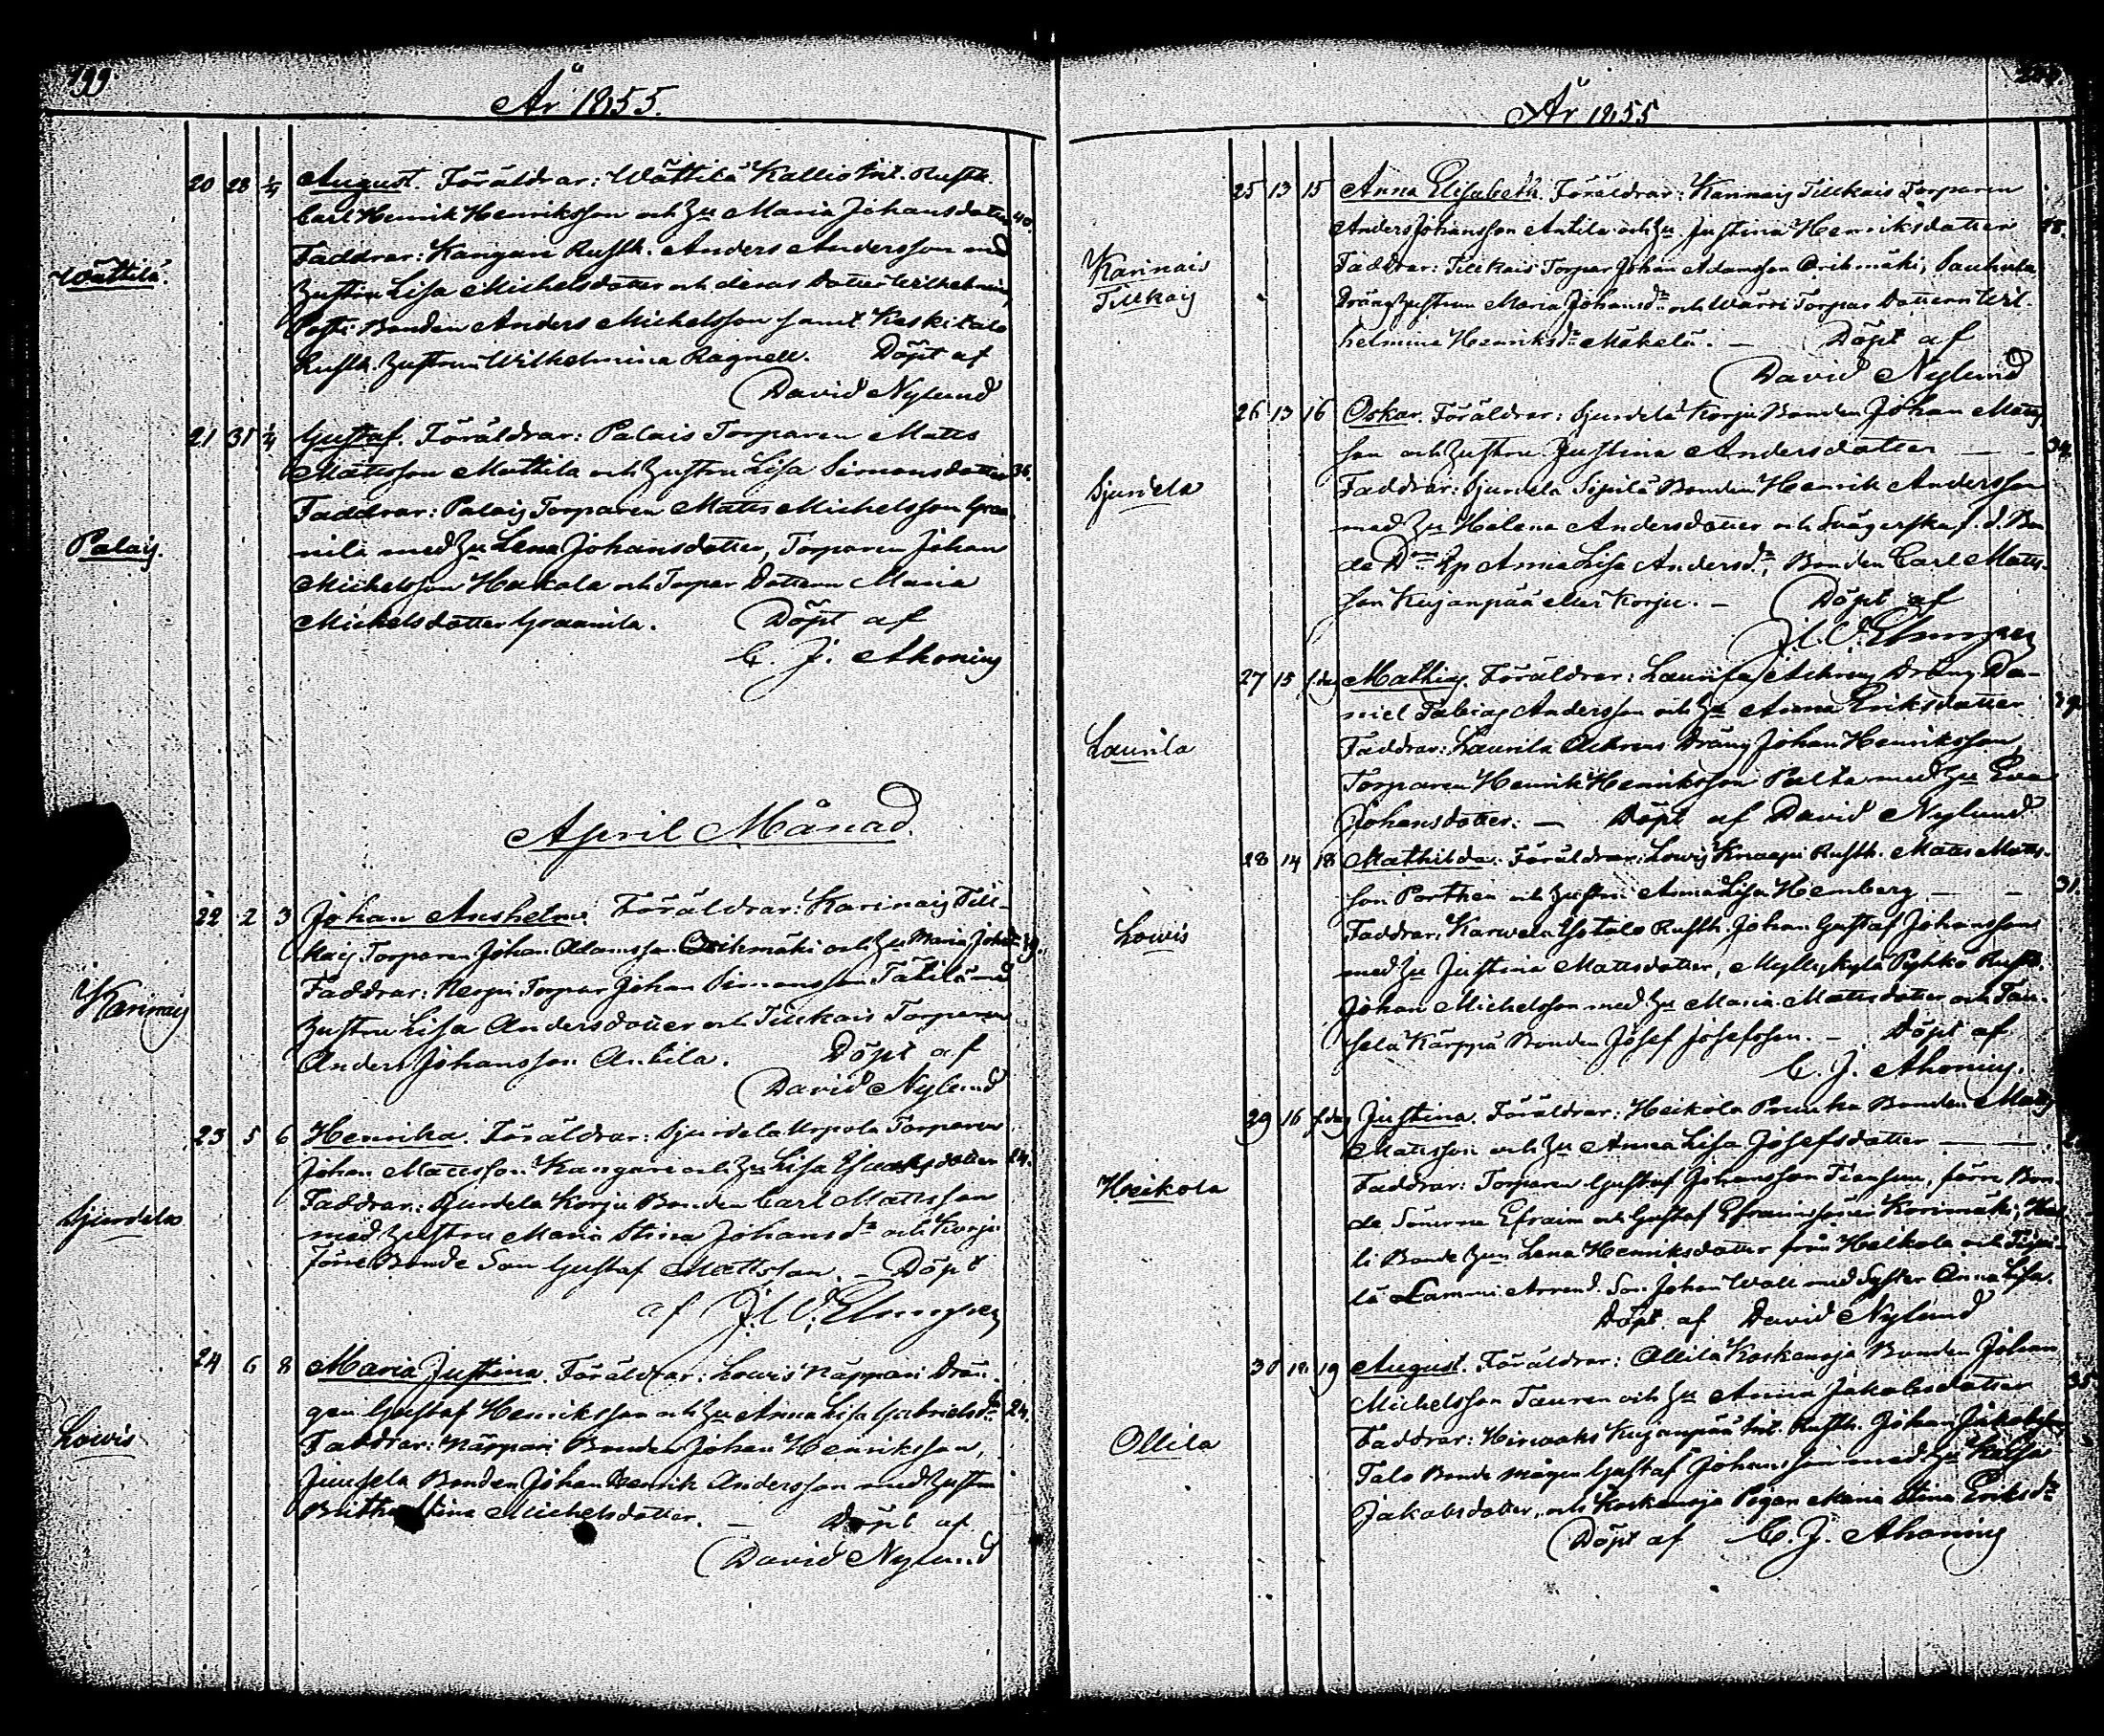 199.
År 1855.
Wättilä.
20 28 1/4 August. Föräldrar: Wättilä Kallio Rusth.
Carl Henrik Henriksson och Hu Maria Johansdotter 40.
Faddrar: Kangare Rusth. Anders Andersson med
hustru Lisa Michelsdotter och deras dotter Wilhelmina,
Bonden Anders Michelsson samt Keskitalo
Rusth. hustrun Wilhelmina Ragnell. Döpt af
David Nylund
Palais.
21 31 1/4 Gustaf. Föräldrar: Palais Torparen Matts
Mattsson Mattila och hustru Lisa Simonsdotter 36.
Faddrar: Palais Torparen Matts Michelsson Graa-
nila med Hu Lena Johansdotter, Torparen Johan
Michelsson Hakala och Torpar Dottern Maria
Michelsdotter Graanila. Döpt af
C. J. Ahonius
April Månad.
Karinais
22 2 3 Johan Anshelm. Föräldrar: Karinais Till-
kais Torparen Johan Adamsson Orihmäki och Hu Maria Johsdr
Faddrar: Torpar Johan Simonsson Tätilä med
hustru Lisa Andersdotter och Tillkais Torparen
Anders Johansson Antila. Döpt af
David Nylund
Sjurdela
23 5 6 Henrika. Föräldrar: Sjurdela Uspola Torparen
Johan Mattsson Kangare och Hu Lisa Isaaksdotter 24.
Faddrar: Sjurdela Korju Bonden Carl Mattsson
med hustru Maria Stina Johansdr och Korju
förre Bonde Son Gustaf Mattsson. – Döpt
af
Lowis
24 6 8 Maria Justina. Föräldrar: Lowis Näppari Drän-
gen Gustaf Henriksson och Hu Anna Lisa Gabrielsdr 24.
Faddrar: Näppari Bonden Johan Henriksson,
Juusela Bonden Johan Henrik Andersson med hustru
Stina Michelsdotter. – Döpt af
David Nylund
År 1855
Karinais
Tillkais
25 13 15 Anna Elisabeth. Föräldrar: Karinais Tillkais Torparen
Anders Johansson Antila och Hu Justina Henriksdotter 28.
Faddrar: Tillkais Torpar Johan Adamsson Orihmäki, Pauhula
Dräng hustrun Maria Johansdr och Wärri Torpar Dottern Wil-
helmina Henriksdr Mäkelä. – Döpt af
David Nylund
Sjurdela
26 13 16 Oskar. Föräldrar: Sjurdela Korju Bonden Johan Matts-
son och hustru Justina Andersdotter – – 34.
Faddrar: Sjurdela Sipilä Bonden Henrik Andersson
med Hu Helena Andersdotter och Svägerska, f. d. Bon
de Anna Lisa Andersdr, Bonden Carl Matts-
son Kujanpää eller Korju. – Döpt af
Laurila
27 15 s. dag Mathias. Föräldrar: Laurila Ackrens Dräng Da-
niel Tobias Andersson och Hu Anna Eriksdotter
Faddrar: Laurila Ackrens Dräng Johan Henriksson,
Torparen Henrik Henriksson Palta med Hu Eva
Johansdotter. – Döpt af David Nylund
Lowis
28 14 18 Mathilda. Föräldrar: Lowis Knaapi Rusth. Matts Matts-
son Porthen och hustru Anna Lisa Hemberg – – 31.
Faddrar: Karwela Ylitalo Rusth. Johan Gustaf Johansson
med Hu Justina Mattsdotter, Myllykylä Pyhkö Rusth.
Johan Michelsson med Hu Maria Mattsdotter och Tau-
sela Kärppä Bonden Josef Josefsson. – Döpt af
C. J. Ahonius.
Heikola
29 16 s. dag Justina. Föräldrar: Heikola Prunka Bonden Matts
Mattsson och Hu Anna Lisa Josefsdotter – –
Faddrar: Torparen Gustaf Johansson Tiensuu, förre Bon-
de Sönerne Efraim och Gustaf Efraimssöner Korimäki,
Bonde Hun Lena Henriksdotter från Heikola och
Lammi Arrend. Son Johan Wall med Syster Anna Lisa.
Döpt af David Nylund
Ollila
30 18 19 August. Föräldrar: Ollila Koskenoja Bonden Johan
Michelsson Tauren och Hu Anna Jakobsdotter 35.
Faddrar: Hirwoaho Kujanpää Rusth. Johan Jakobsson
Talo Bonde mågen Gustaf Johansson med Hu
Jakobsdotter, och Koskenoja Pigan Maria Stina Eriksdr
Döpt af C. J. Ahonius